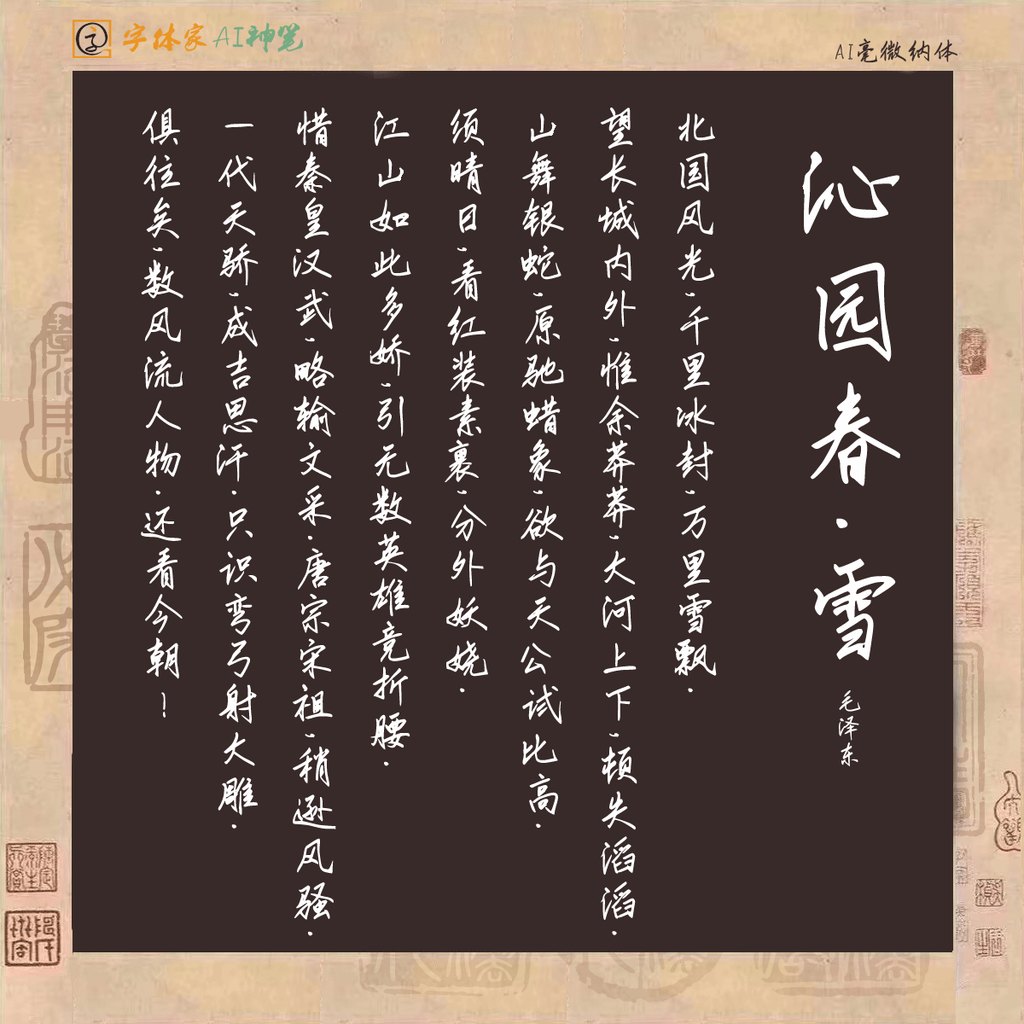 字体家AI神笔
AI毫微纳体
沁园春·雪
毛泽东
北国风光,千里冰封,万里雪飘.
望长城内外,惟余莽莽,大河上下,顿失滔滔.
山舞银蛇,原驰蜡象,欲与天公试比高.
须晴日,看红装素裹,分外妖娆.
江山如此多娇,引无数英雄竞折腰.
惜秦皇汉武,略输文采.唐宗宋祖,稍逊风骚.
一代天骄,成吉思汗.只识弯弓射大雕.
俱往矣,数风流人物.还看今朝!